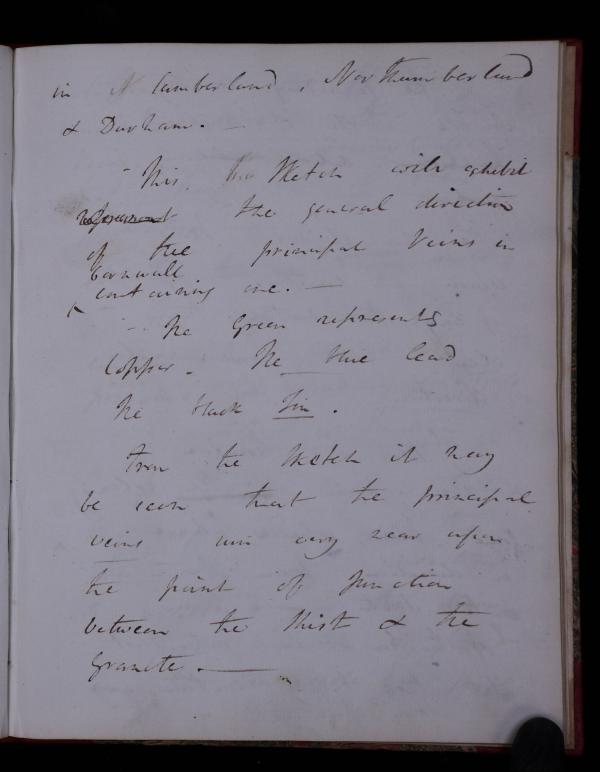 in Cumberland, Northumberland
& Durham. —
- This Sketch will exhibit
represent the general direction
of the principal Veins in
Cornwall
containing ore. —
- The Green represents
Copper - The blue lead
The black Tin.
From the Sketch it may
be seen that the principal
veins run very near upon
the point of Junction
between the Shist & the
Granite. —